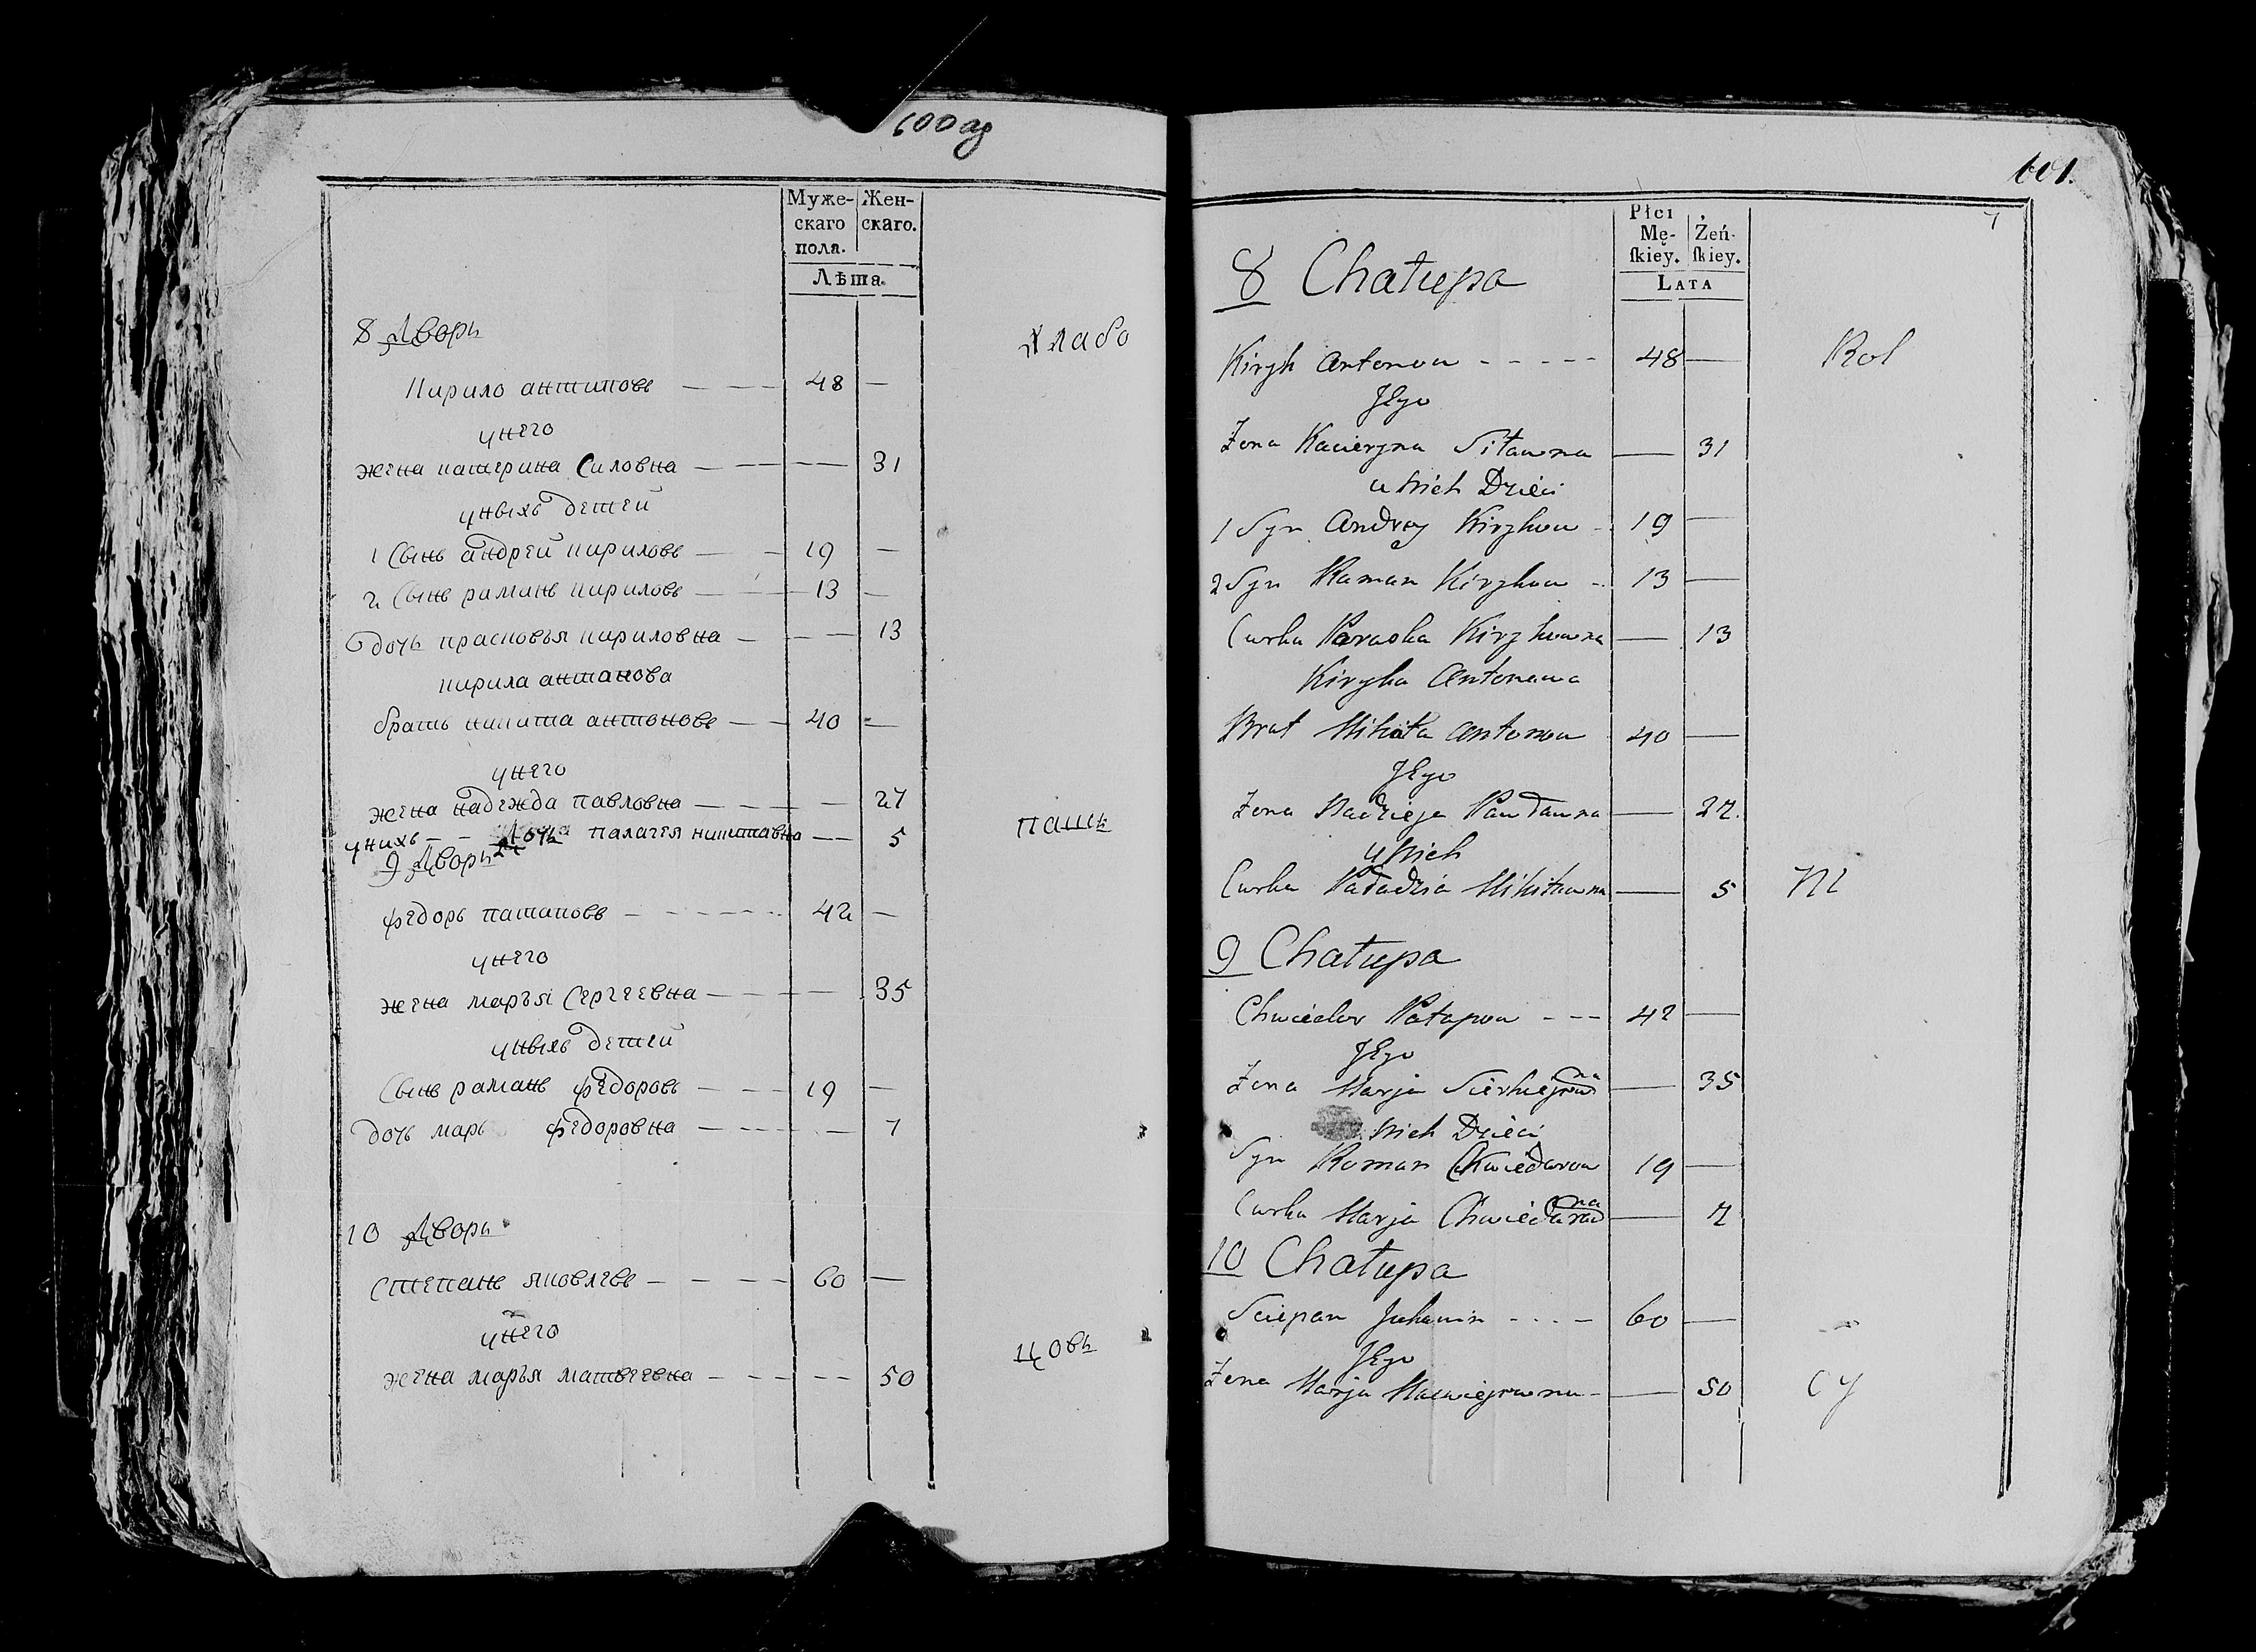 600 об
Муже-
скаго
пола.
Жен-
скаго.
Лѣта.
8 Дворъ
Кирило антиповъ — — — 48 —
унего
жена катерина Силовна — — — — 31
уныхъ детей
1 Сынъ андрей кириловъ — — 19 —
2 Сынъ раманъ кириловъ — — 13 —
дочь прасковъя кириловна — — — 13
кирила антанова
братъ никита антоновъ — — 40 —
унего
жена надежда павловна — — — — 27
унихъ — — Дочь палагея никитавна — — 5
9 Дворъ
федоръ патаповъ — — — — 42 —
унего
жена маръя Сергеевна — — — — 35
уныхъ детей
Сынъ раманъ федоровъ — — — 19 —
дочь марь федоровна — — — — 7
10 Дворъ
Степанъ яковлевъ — — — — 60 —
унего
жена маръя матвеевна — — — — — 50
хлабо
пашъ
цовъ
601.
7
Płci
Mę-
skiey.
Żeń-
skiey.
LATA
8 Chałupa
Kiryh Antonow - - - - - 48 —
Jego
Żona Kacieryna Siławna — 31
u Nich Dzieci
1 Syn Andrey Kiryłow - 19 —
2 Syn Raman Kiryłow - 13 —
Curka Paraska Kiryłowna — 13
Kiryła Antonawa
Brat Mikita Antonow 40 —
Jego
Żona Nadzieja Pawławna — 27.
u Nich
Curka Paładzia Mikitawna — 5
9 Chałupa
Chwiedor Patapow - - - 42 —
Jego
Żona Marja Sierhiejewna — 35
Nich Dzieci
Syn Roman Chwiedarow 19 —
Curka Marja Chwiedarowna — 7
10 Chałupa
Sciepan Jakowin - - - - 60 —
Jego
Żona Marja Maćwiejewna - — 50
Rol
Ni
cy